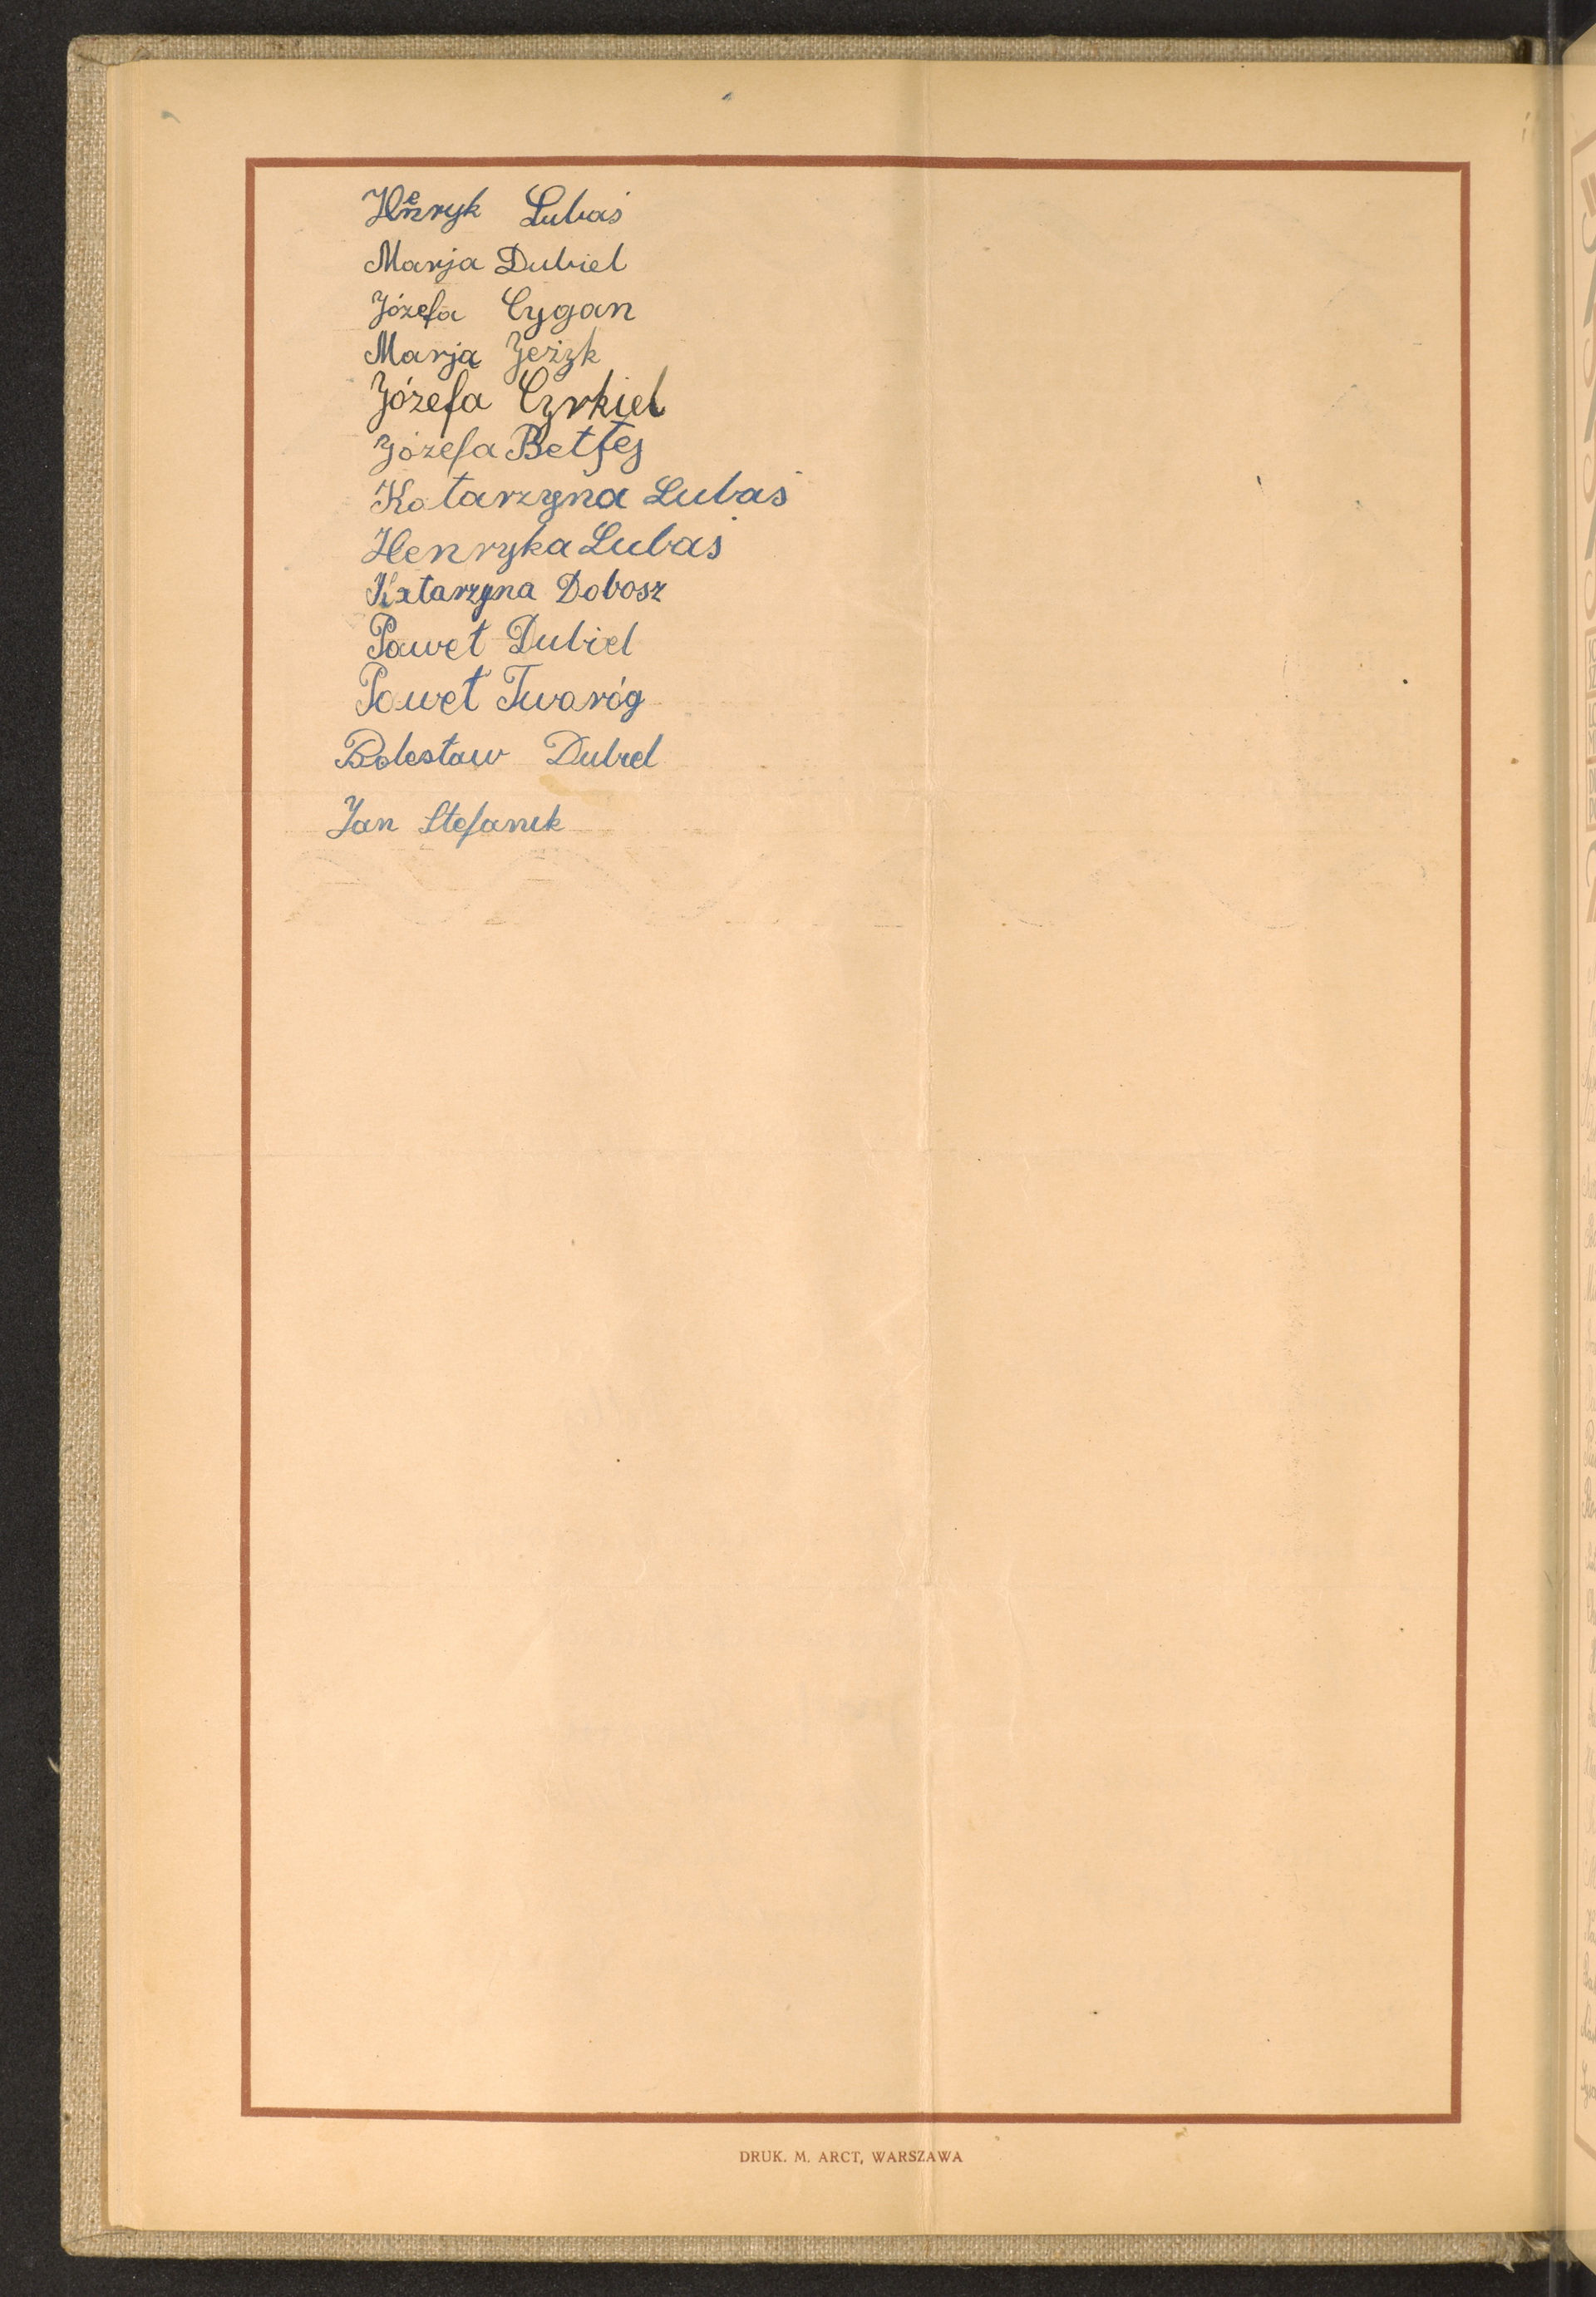 Henryk Lubaś
Marja Dubiel
Józefa Cygan
Marja Jeżyk
Józefa Cyrkiel
Józefa
Katarzyna Lubaś
Henryka Lubaś
Katarzyna Dobosz
Paweł Dubiel
Paweł Twaróg
Bolesław Dubiel
Jan Stefanik
DRUK. M. ARCT, WARSZAWA